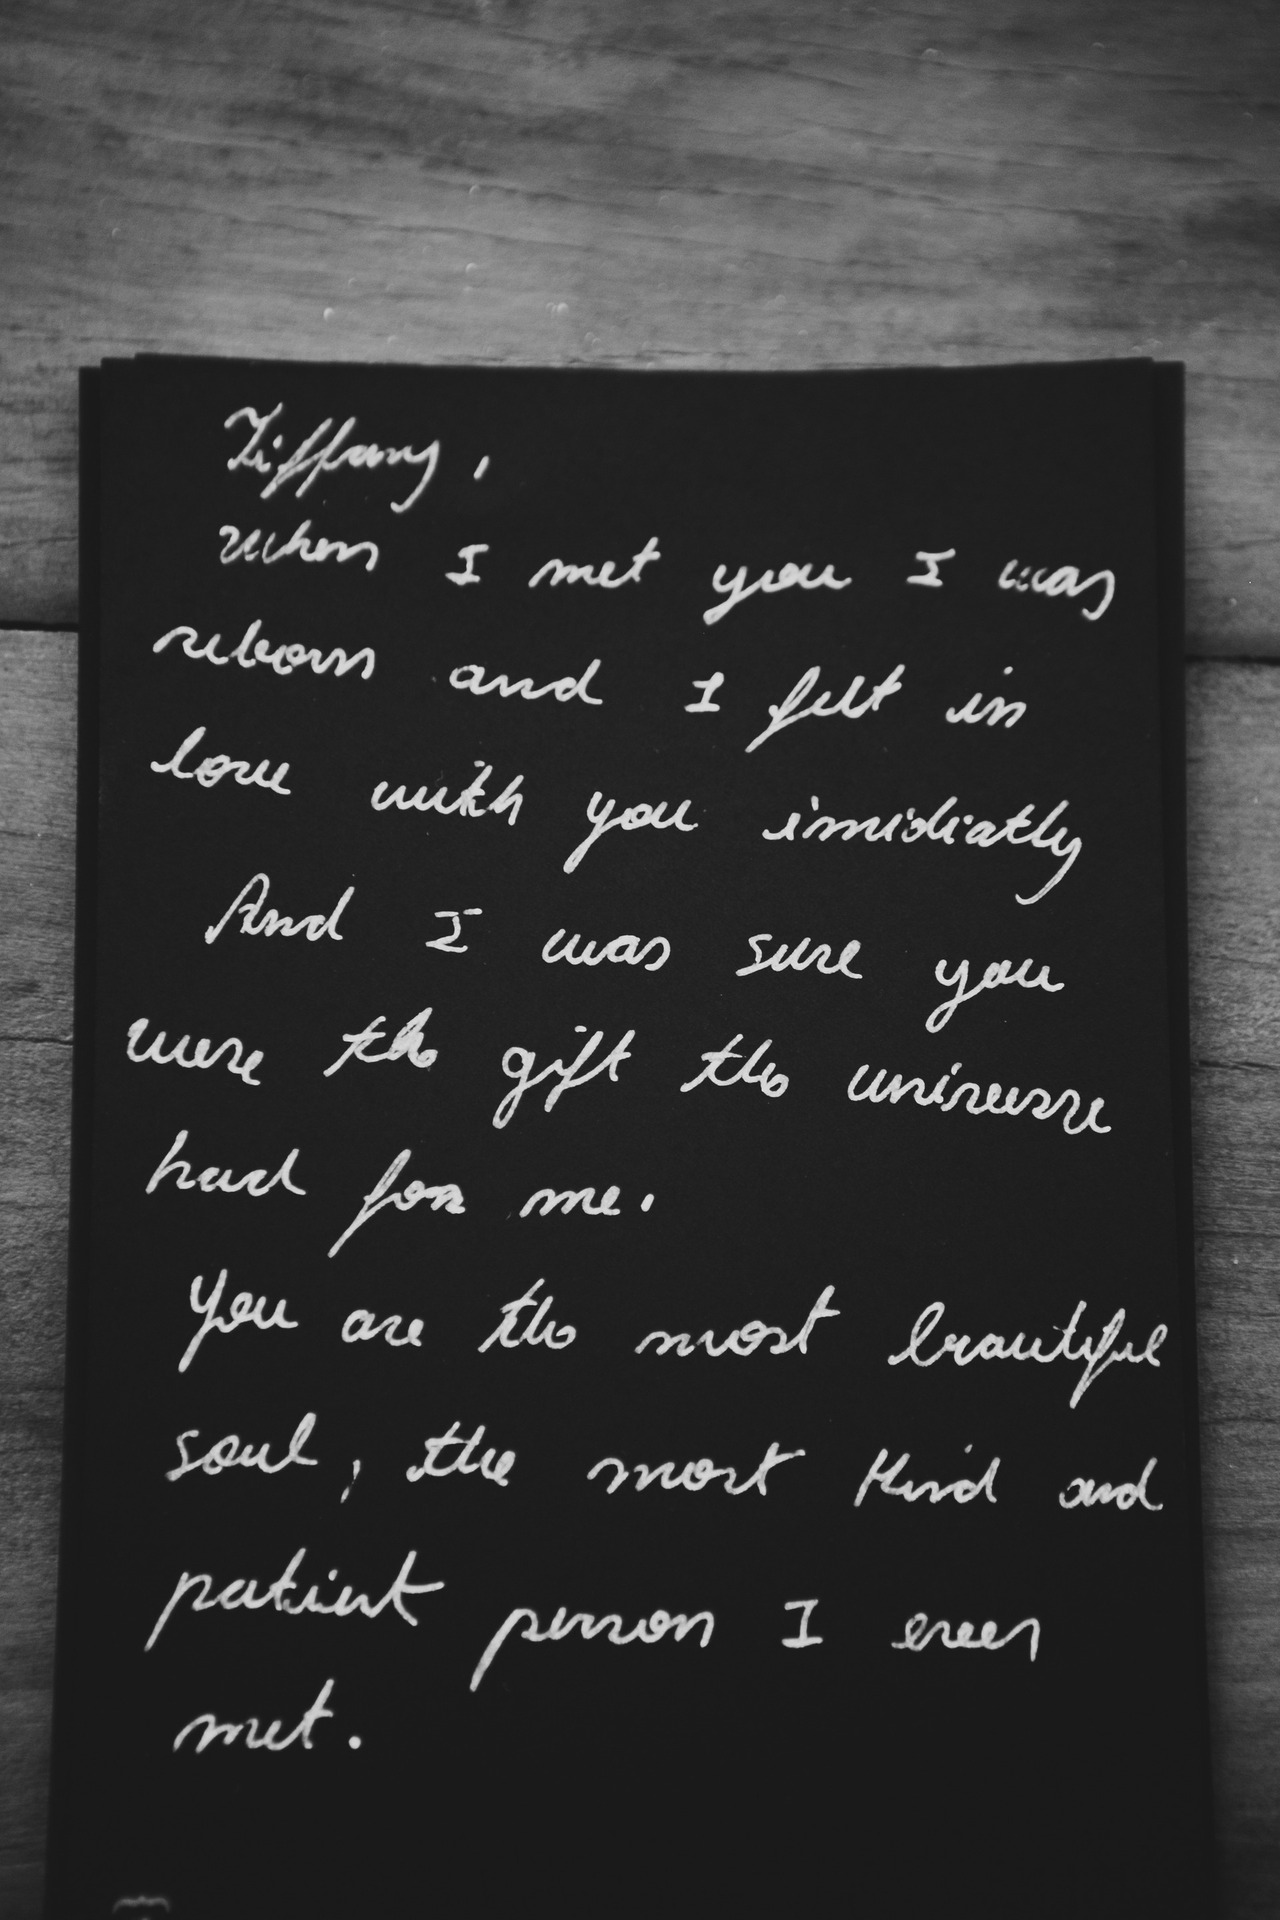 Tiffany,
When I met you I was
reborn and I felt in
love with you imidiatly
And I was sure you
were the gift the universe
had for me.
You are the most beautiful
soul, the most kind and
patient person I ever
met.